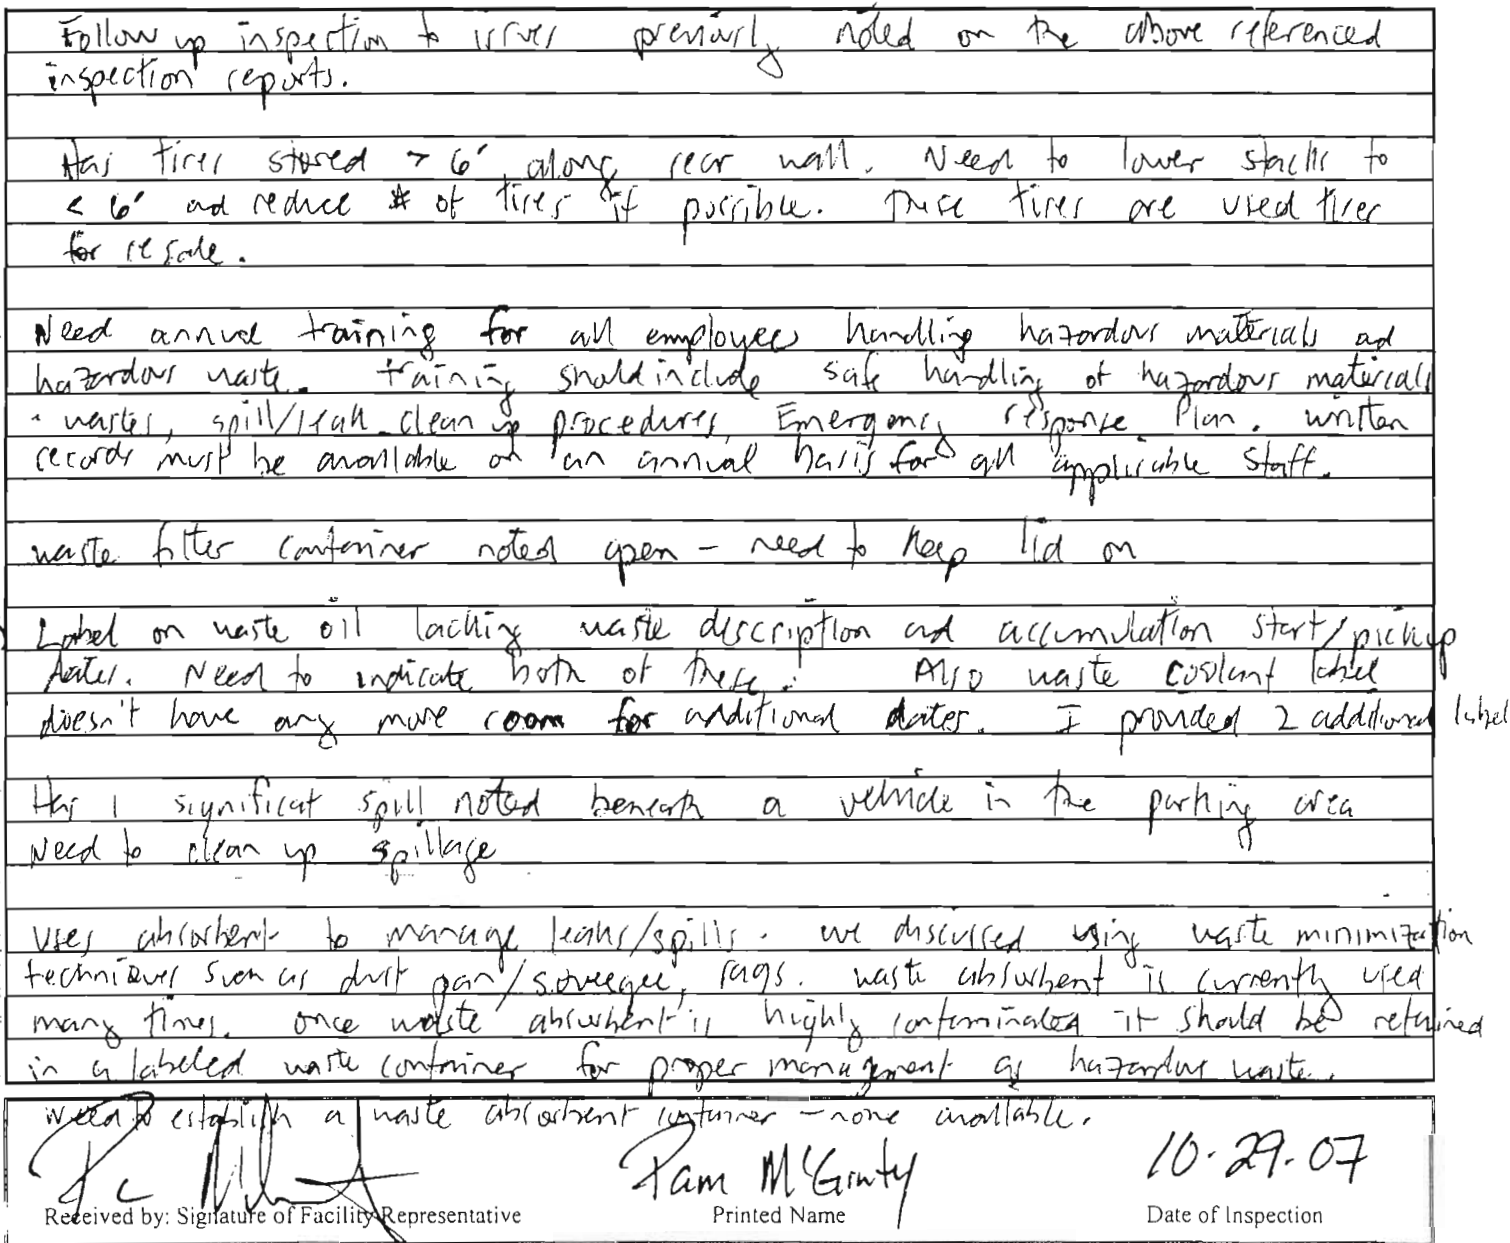 Follow up inspection to issues previously noted on the above referenced
inspection reports.
Has tires stored > 6' along rear wall. Need to lower stacks to
< 6' and reduce # of tires if possible. These tires are used tires
for resale.
Need annual training for all employees handling hazardous materials and
hazardous waste. Training should include safe handling of hazardous materials
wastes, spill/leak clean up procedures, Emergency response Plan. written
records must be available on an annual basis for all applicable staff.
waste filter container noted open - need to keep lid on
Label on waste oil lacking waste description and accumulation start/pickup
dates. Need to indicate both of these. Also waste coolant label
doesn't have any more room for additional dates. I provided 2 additional label
Has 1 significat spill noted beneath a vehicle in the parking area
Need to clean up spillage
Uses absorbent to manage leaks/spills. we discussed using waste minimization
techniques such as dust pan/squeegee, rags. waste absorbent is currently used
many times. Once waste absorbent is highly contaminated it should be retained
in a labeled waste container for proper management as hazardous waste.
Need to establish a waste absorbent container - none available.
Pam McGinty 10-29-07
Received by: Signature of Facility Representative Printed Name Date of Inspection